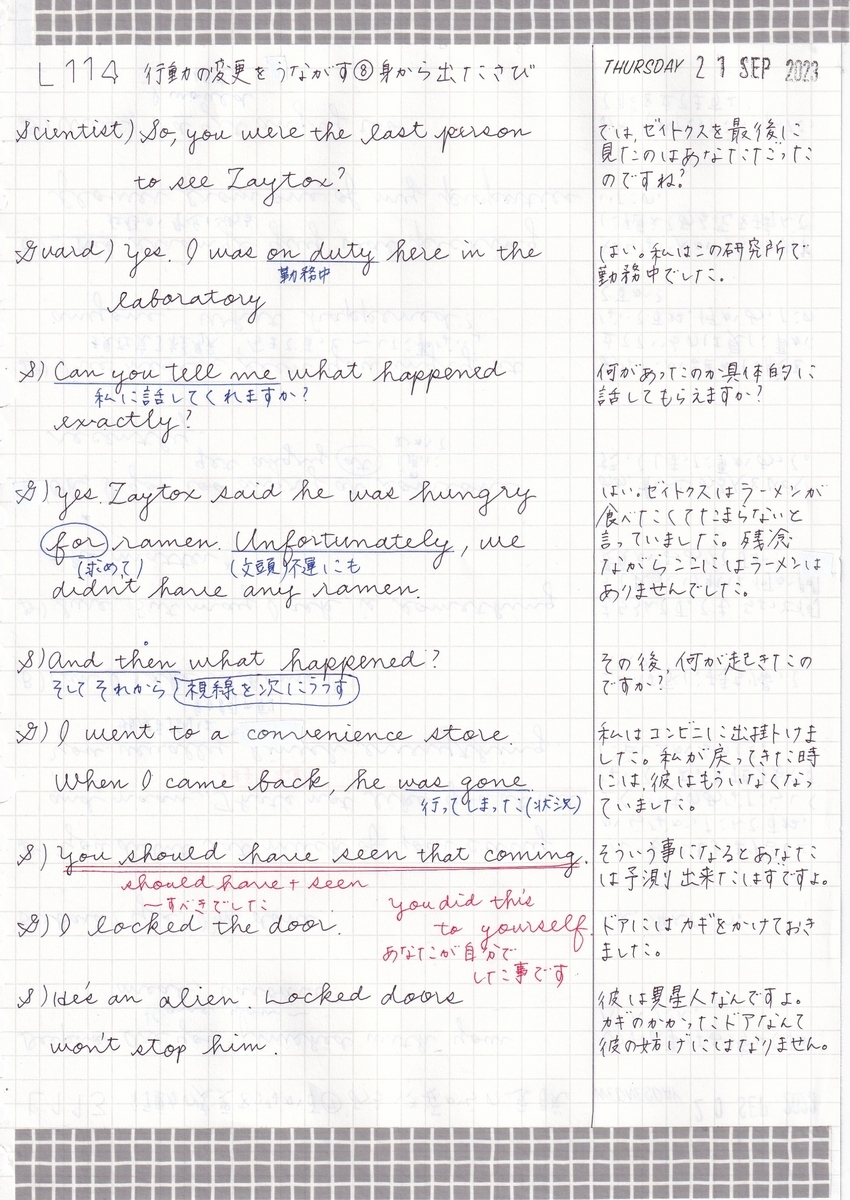 L114 行動の変更をうながす⑧身から出たさび
THURSDAY 21 SEP 2023
Scientist) So, you were the last person
to see Zaytox?
では、ゼイトクスを最後に
見たのはあなただった
のですね?
Guard) Yes. I was on duty here in the
勤務中
laboratory
はい。私はこの研究所で
勤務中でした。
S) Can you tell me what happened
私に話してくれますか?
exactly?
何があったのか具体的に
話してもらえますか?
G) Yes. Zaytox said he was hungry
for ramen. Unfortunately, we
(求めて) (文頭)不運にも
didn't have any ramen.
はい。ゼイトクスはラーメンが
食べたくてたまらないと
言っていました。残念
ながらここにはラーメンは
ありませんでした。
S) And then what happened?
そして それから 視線を次にうつす
その後、何が起きたの
ですか?
G) I went to a convenience store.
When I came back, he was gone.
行ってしまった(状況)
私はコンビニに出掛けま
した。私が戻ってきた時
には、彼はもういなくなっ
ていました。
S) You should have seen that coming.
should have + seen
〜すべきでした
そういう事になるとあなた
は予測出来たはずですよ。
You did this
to yourself.
あなたが自分で
した事です
G) I locked the door.
ドアにはカギをかけておき
ました。
S) He's an alien. Locked doors
won't stop him.
彼は異星人なんですよ。
カギのかかったドアなんて
彼の妨げにはなりません。